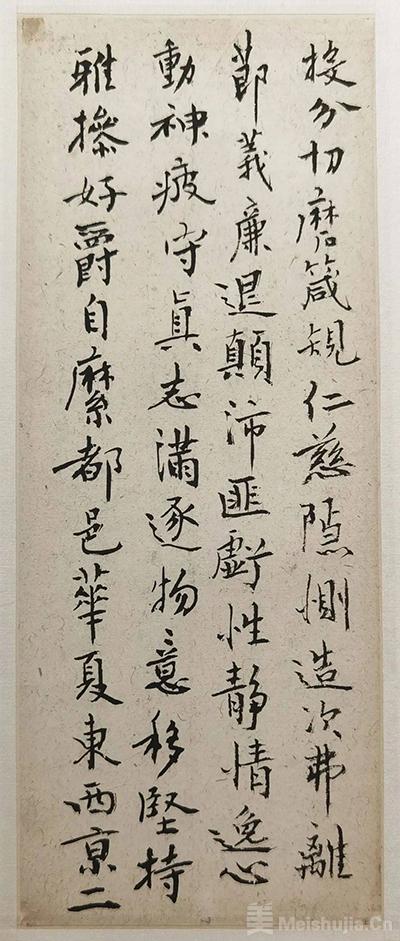 投分切磨箴規仁慈隱惻造次弗離
節義廉退顛沛匪虧性靜情逸心
動神疲守真志滿逐物意移堅持
雅操好爵自縻都邑華夏東西京二
美 Meishujia.Cn